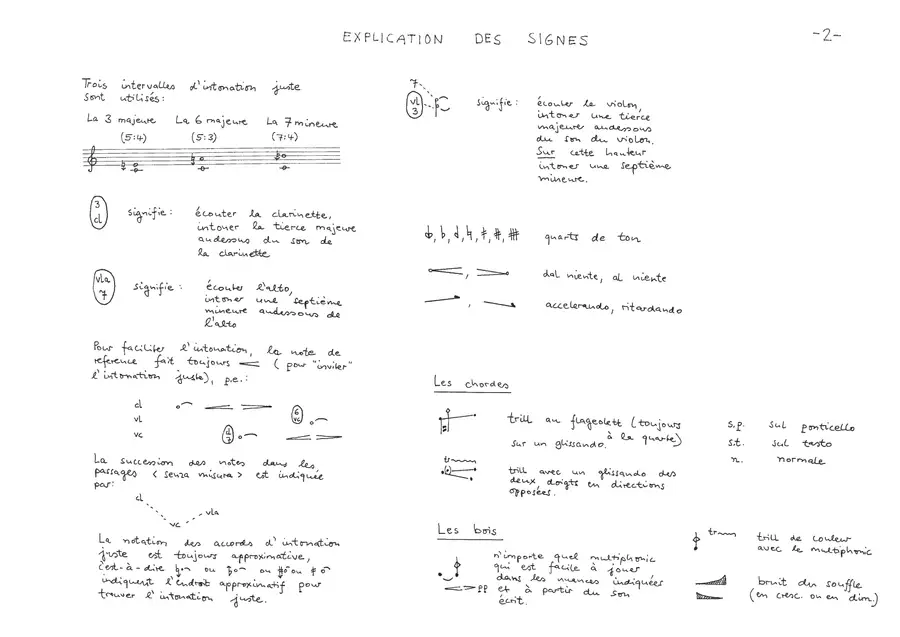 EXPLICATION DES SIGNES
-2-
Trois intervalles d'intonation juste
sont utilisés:
La 3 majeure La 6 majeure La 7 mineure
(5:4) (5:3) (7:4)
3
cl
signifie: écouter la clarinette,
intoner la tierce majeure
audessus du son de
la clarinette
vla
7
signifie: écouter l'alto,
intoner une septième
mineure audessous de
l'alto
Pour faciliter l'intonation, la note de
reference fait toujours < (pour "inviter"
l'intonation juste), p.e.:
cl
vl
6
vc
vc
La succession des notes dans les
passages <senza misura> est indiquée
par:
cl
vla
vc
La notation des accords d'intonation
juste est toujours approximative,
c'est-à-dire ou ou ou
indiquent l'endroit approximatif pour
trouver l'intonation juste.
7
vl
3
signifie: écouter le violon,
intoner une tierce
majeure audessous
du son du violon.
Sur cette hauteur
intoner une septième
mineure.
quarts de ton
dal niente, al niente
accelerando, ritardando
Les chordes
trill au flageolett (toujours
à la quarte)
sur un glissando.
tr
trill avec un glissando des
deux doigts en directions
opposées.
s.p. sul ponticello
s.t. sul tasto
n. normale
Les bois
n'importe quel multiphonic
qui est facile à jouer
dans les nuances indiquées
pp et à partir du son
écrit.
tr
trill de couleur
avec le multiphonic
bruit du souffle
(en cresc. ou en dim.)